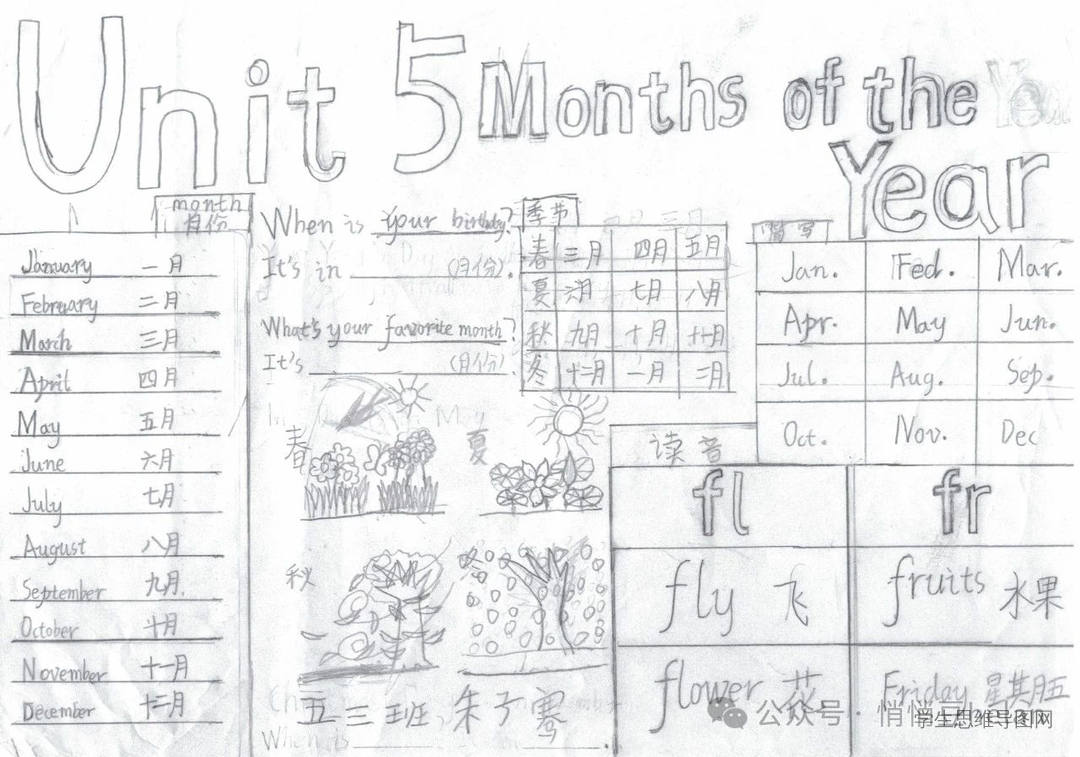 Unit 5 Months of the Year
month
月份
January 一月
February 二月
March 三月
April 四月
May 五月
June 六月
July 七月
August 八月
September 九月
October 十月
November 十一月
December 十二月
When is your birthday?
It's in (月份).
What's your favorite month?
It's (月份)
季节
春 三月 四月 五月
夏 六月 七月 八月
秋 九月 十月 十一月
冬 十二月 一月 二月
春
夏
秋
冬
五三班
Jan. Fed. Mar.
Apr. May Jun.
Jul. Aug. Sep.
Oct. Nov. Dec
读音
fl fr
fly 飞 fruits 水果
flower 花 Friday 星期五
公众号
学生思维导图网